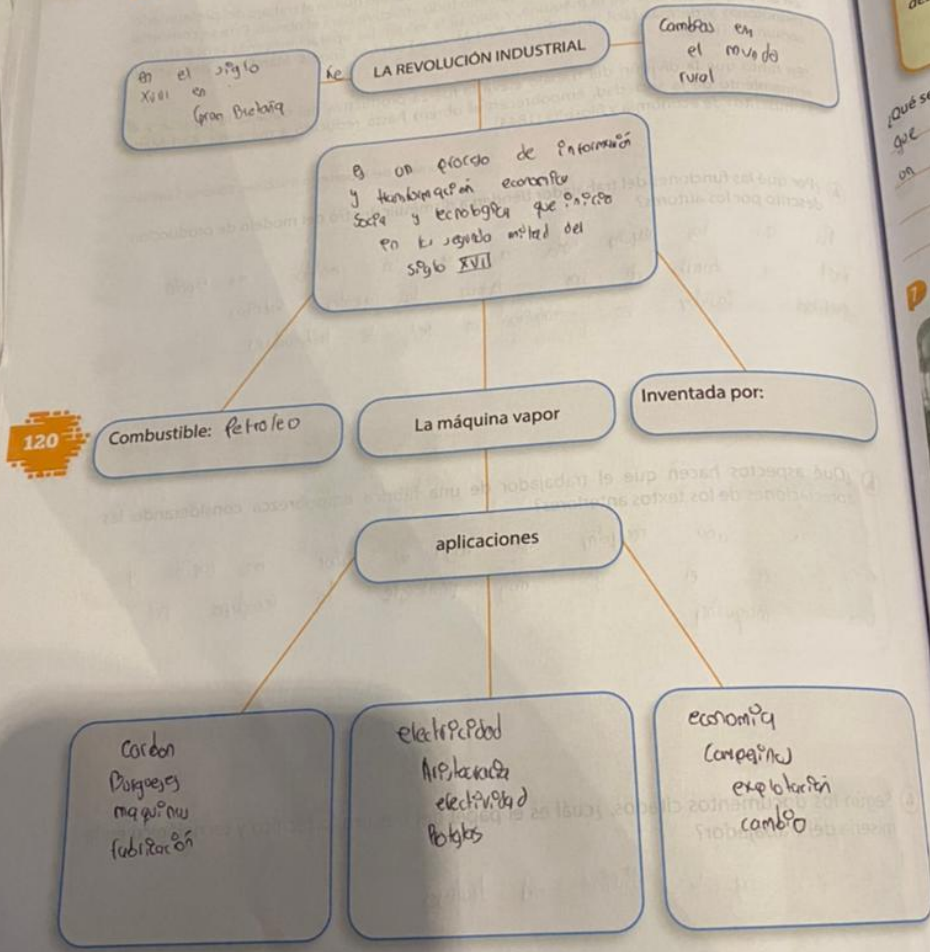 en el siglo
XVIII en
Gran Bretaña
fue
LA REVOLUCIÓN INDUSTRIAL
Cambios en
el mundo
rural
¿Qué se
que
on
es un proceso de información
y transformación economica
Social y tecnologica que inicio
en la segunda mitad del
siglo XVII
7
120
Combustible: Petroleo
La máquina vapor
Inventada por:
aplicaciones
Carbon
Burgueses
maquinas
fabricación
electricidad
Aristocracia
electividad
economia
explotación
cambio